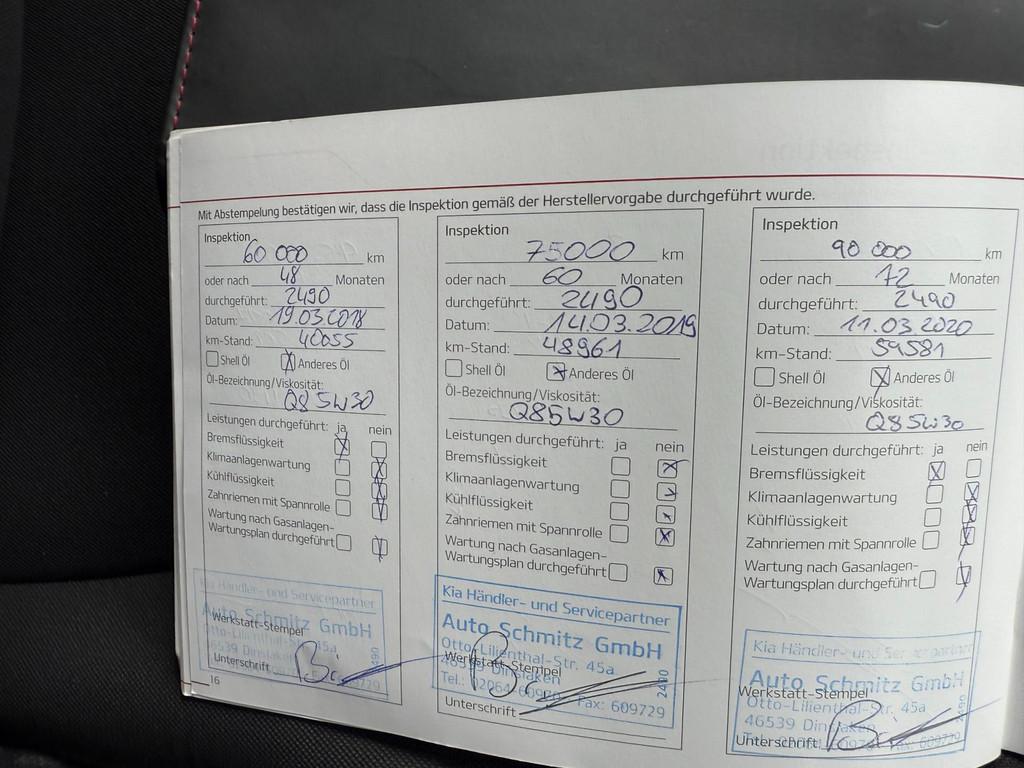 Mit Abstempelung bestätigen wir, dass die Inspektion gemäß der Herstellervorgabe durchgeführt wurde.
Inspektion
60 000 km
oder nach 48 Monaten
durchgeführt: 2490
Datum: 19.03.2018
km-Stand: 40055
Shell Öl Anderes Öl
Öl-Bezeichnung/Viskosität:
Q8 5W30
Leistungen durchgeführt: ja nein
Bremsflüssigkeit
Klimaanlagenwartung
Kühlflüssigkeit
Zahnriemen mit Spannrolle
Wartung nach Gasanlagen-
Wartungsplan durchgeführt
Kia Händler- und Servicepartner
Auto Schmitz GmbH
Werkstatt-Stempel
Otto-Lilienthal-Str. 45a
46539 Dinslaken
Unterschrift
2490
16
Inspektion
75000 km
oder nach 60 Monaten
durchgeführt: 2490
Datum: 14.03.2019
km-Stand: 48961
Shell Öl Anderes Öl
Öl-Bezeichnung/Viskosität:
Q8 5W30
Leistungen durchgeführt: ja nein
Bremsflüssigkeit
Klimaanlagenwartung
Kühlflüssigkeit
Zahnriemen mit Spannrolle
Wartung nach Gasanlagen-
Wartungsplan durchgeführt
Kia Händler- und Servicepartner
Auto Schmitz GmbH
Otto-Lilienthal-Str. 45a
Werkstatt-Stempel
46539 Dinslaken
Tel.: 02064 60970 Fax: 609729
2490
Unterschrift
Inspektion
90 000 km
oder nach 72 Monaten
durchgeführt: 2490
Datum: 11.03.2020
km-Stand: 59581
Shell Öl Anderes Öl
Öl-Bezeichnung/Viskosität:
Q8 5W30
Leistungen durchgeführt: ja nein
Bremsflüssigkeit
Klimaanlagenwartung
Kühlflüssigkeit
Zahnriemen mit Spannrolle
Wartung nach Gasanlagen-
Wartungsplan durchgeführt
Kia Händler- und Servicepartner
Auto Schmitz GmbH
Werkstatt-Stempel
Otto-Lilienthal-Str. 45a
46539 Dinslaken
Fax: 609729
2490
Unterschrift